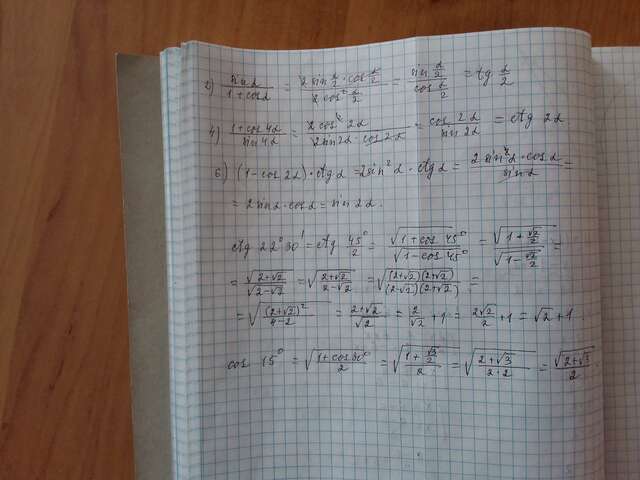 2) sin α / 1 + cos α = 2 sin α/2 · cos α/2 / 2 cos² α/2 = sin α/2 / cos α/2 = tg α/2
4) 1 + cos 4α / sin 4α = 2 cos² 2α / 2 sin 2α · cos 2α = cos 2α / sin 2α = ctg 2α
6) (1 - cos 2α) · ctg α = 2 sin² α · ctg α = 2 sin² α · cos α / sin α =
= 2 sin α · cos α = sin 2α.
ctg 22° 30' = ctg 45°/2 = √(1 + cos 45°) / √(1 - cos 45°) = √(1 + √2/2) / √(1 - √2/2) =
= √(2 + √2) / √(2 - √2) = √((2 + √2) / (2 - √2)) = √((2 + √2)(2 + √2) / (2 - √2)(2 + √2)) =
= √((2 + √2)² / 4 - 2) = 2 + √2 / √2 = 2/√2 + 1 = 2√2/2 + 1 = √2 + 1.
cos 15° = √((1 + cos 30°) / 2) = √((1 + √3/2) / 2) = √((2 + √3) / 2 · 2) = √(2 + √3) / 2.